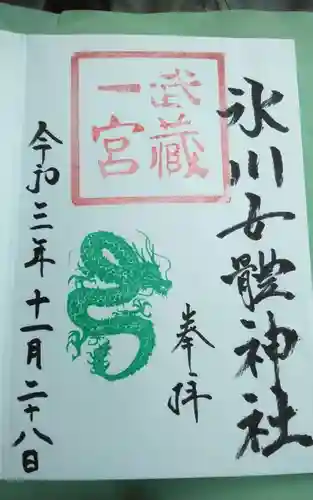 氷川女體神社
武蔵
一宮
奉拝
令和三年十一月二十八日